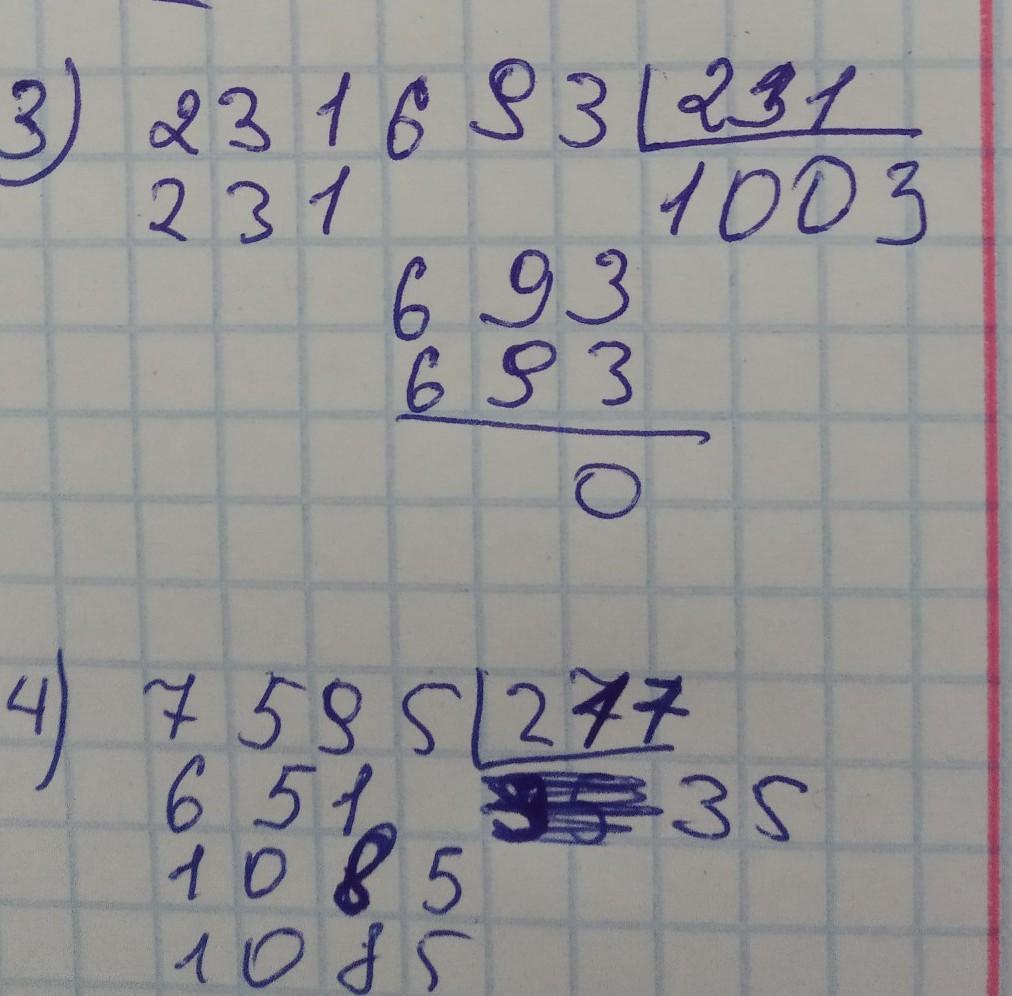 3) 231693 231
231 1003
693
693
0
4) 7595 217
651 35
1085
1085